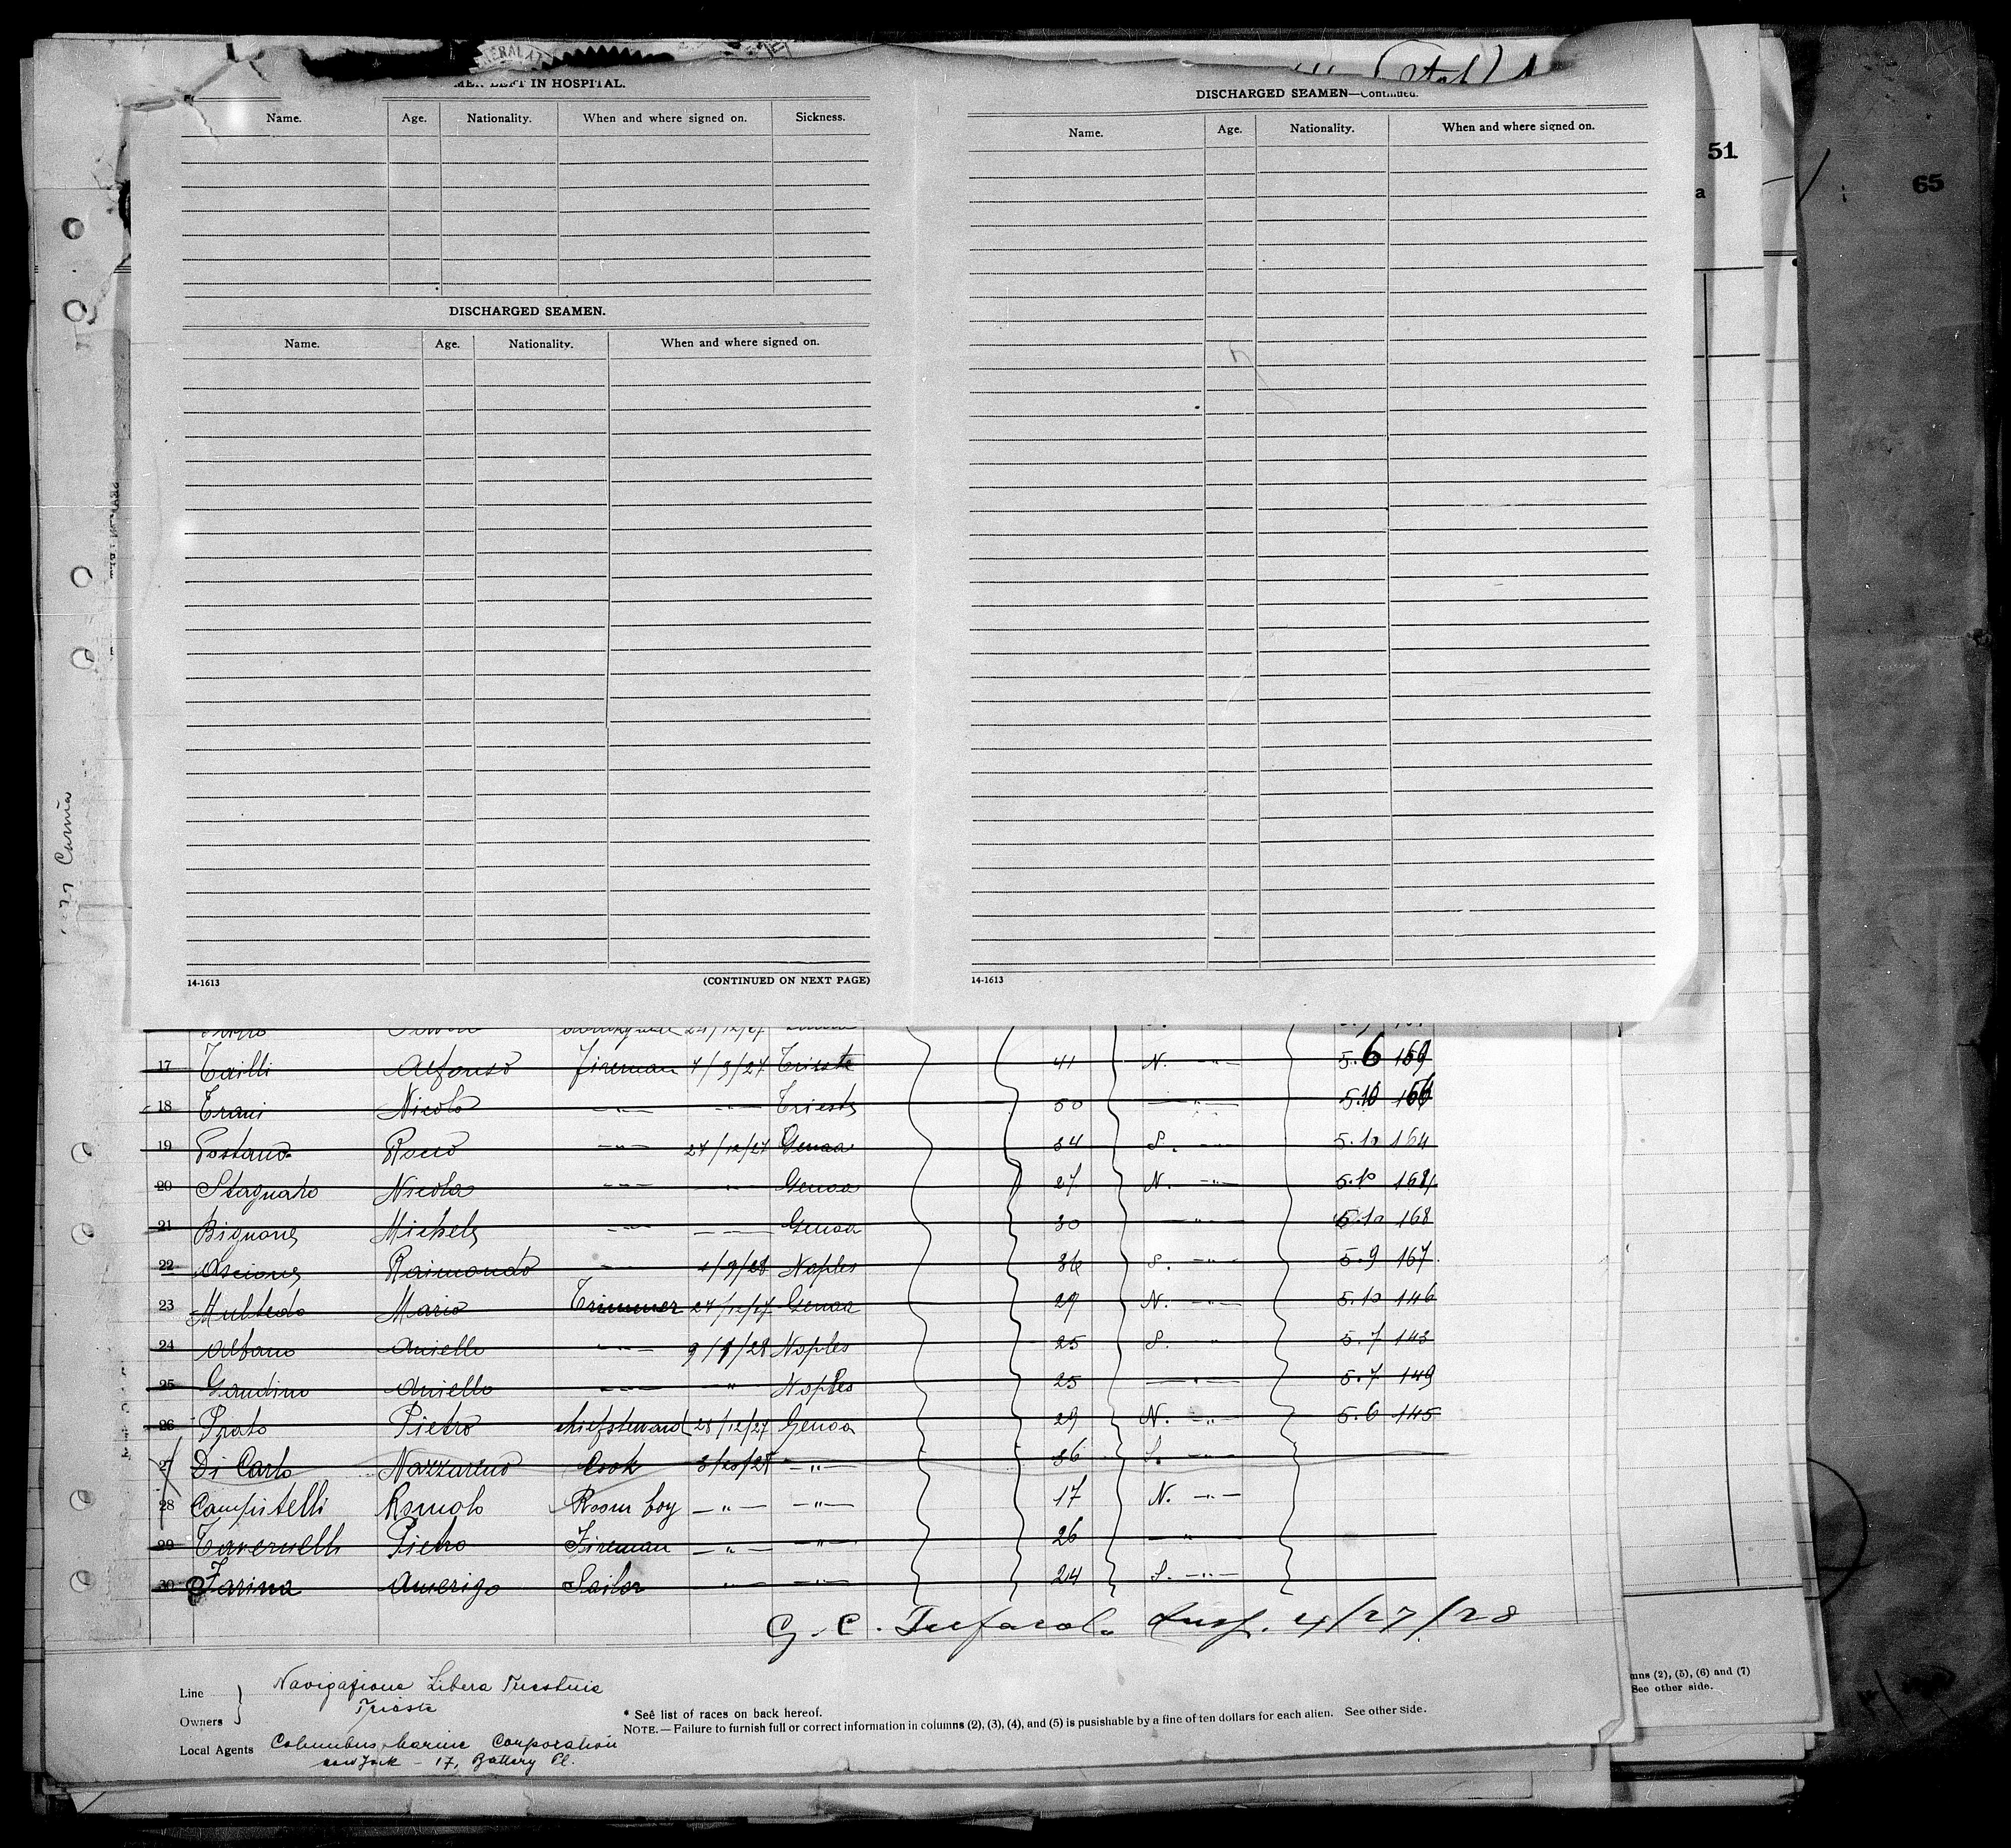 LEFT IN HOSPITAL.
Name. Age. Nationality. When and where signed on. Sickness.
DISCHARGED SEAMEN.
Name. Age. Nationality. When and where signed on.
14-1613 (CONTINUED ON NEXT PAGE)
DISCHARGED SEAMEN—Continued.
Name. Age. Nationality. When and where signed on.
14-1613
51
a
65
17 Tailli Alfonso Fireman 7/9/27 Trieste 41 N. -"- 5.6 159
18 Trani Nicolo -"- -"- Trieste 50 -"- 5.10 166
19 Postano Rocco -"- 27/12/27 Genoa 34 S. -"- 5.10 164
20 Stagnaro Nicola -"- -"- Genoa 27 N. -"- 5.10 168
21 Bignone Michele -"- -"- Genoa 30 -"- 5.10 168
22 Ascione Raimondo -"- 1/9/28 Naples 36 S. -"- 5.9 167
23 Multedo Mario Trimmer 27/12/27 Genoa 29 N. -"- 5.10 146
24 Albano Aniello -"- 9/1/28 Naples 25 S. " 5.7 143
25 Gaudino Aniello -"- " Naples 25 -"- 5.7 149
26 Prato Pietro chiefsteward 28/12/27 Genoa 29 N. -"- 5.6 145
27 Di Carlo Nazzareno Cook -"- 36 S. -"-
28 Campitelli Romolo Room boy -"- -"- 17 N. -"-
29 Tavernelli Pietro Fireman -"- -"- 26 -"-
30 Farina Amerigo Sailor -"- -"- 24 S. -"-
G. C. Insp. 4/27/28
Line Navigazione Libera Triestina
Owners Trieste
Local Agents Columbus Marine Corporation
New York - 17, Battery Pl.
* See list of races on back hereof.
NOTE.—Failure to furnish full or correct information in columns (2), (3), (4), and (5) is punishable by a fine of ten dollars for each alien. See other side.
mns (2), (5), (6) and (7)
See other side.